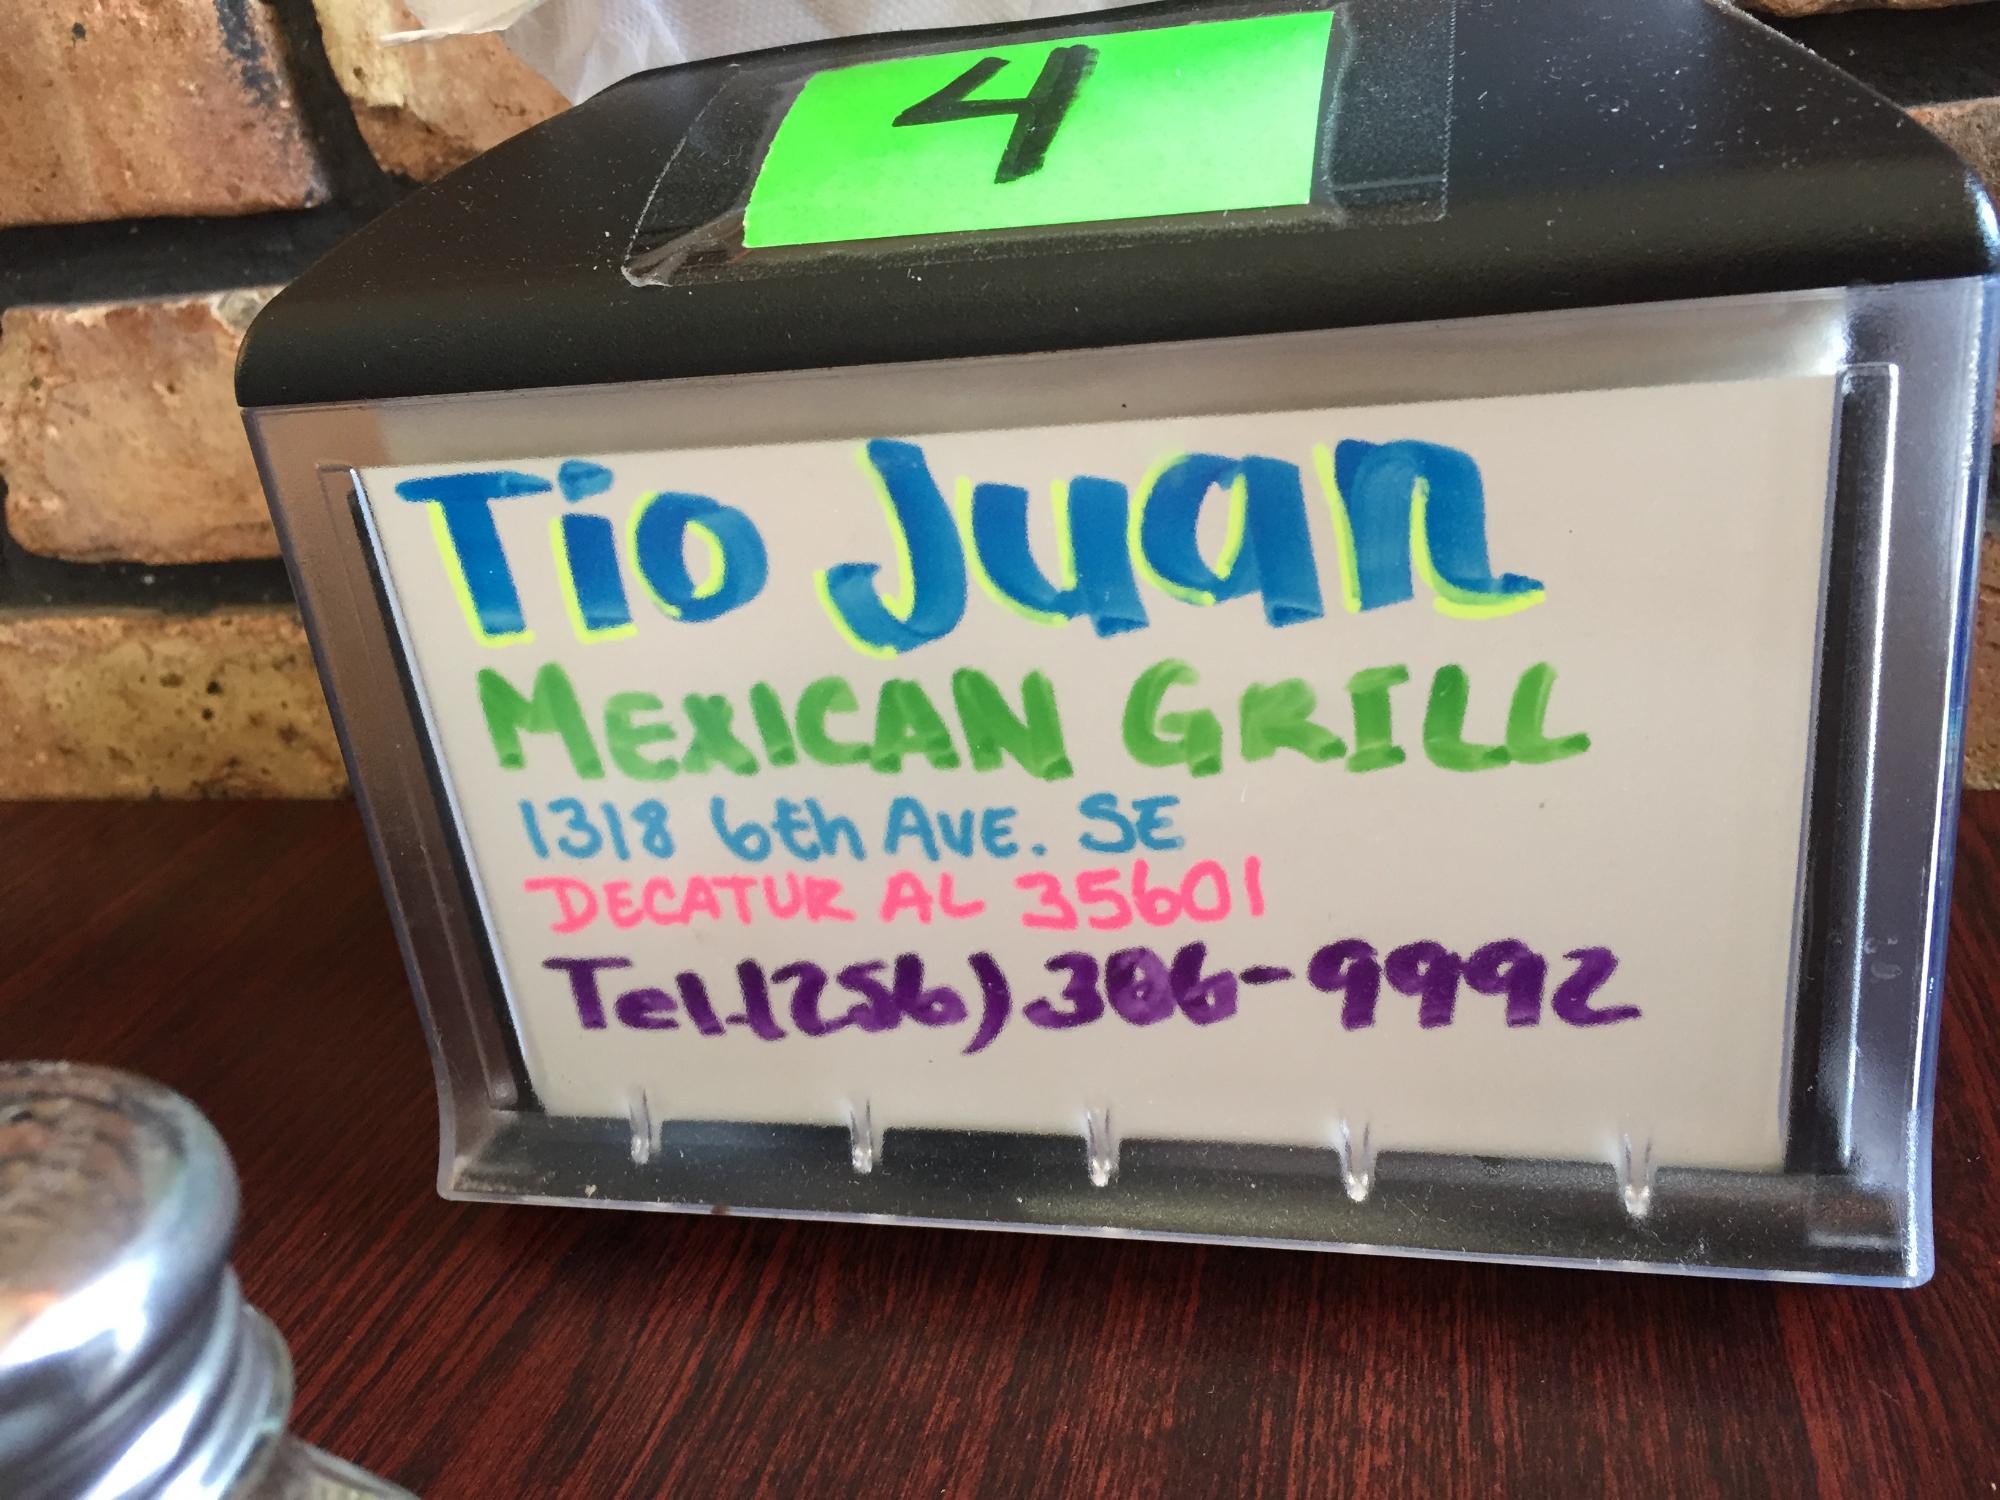 4
Tio Juan
MEXICAN GRILL
1318 6th AVE. SE
DECATUR AL 35601
Tel.(256) 306-9992